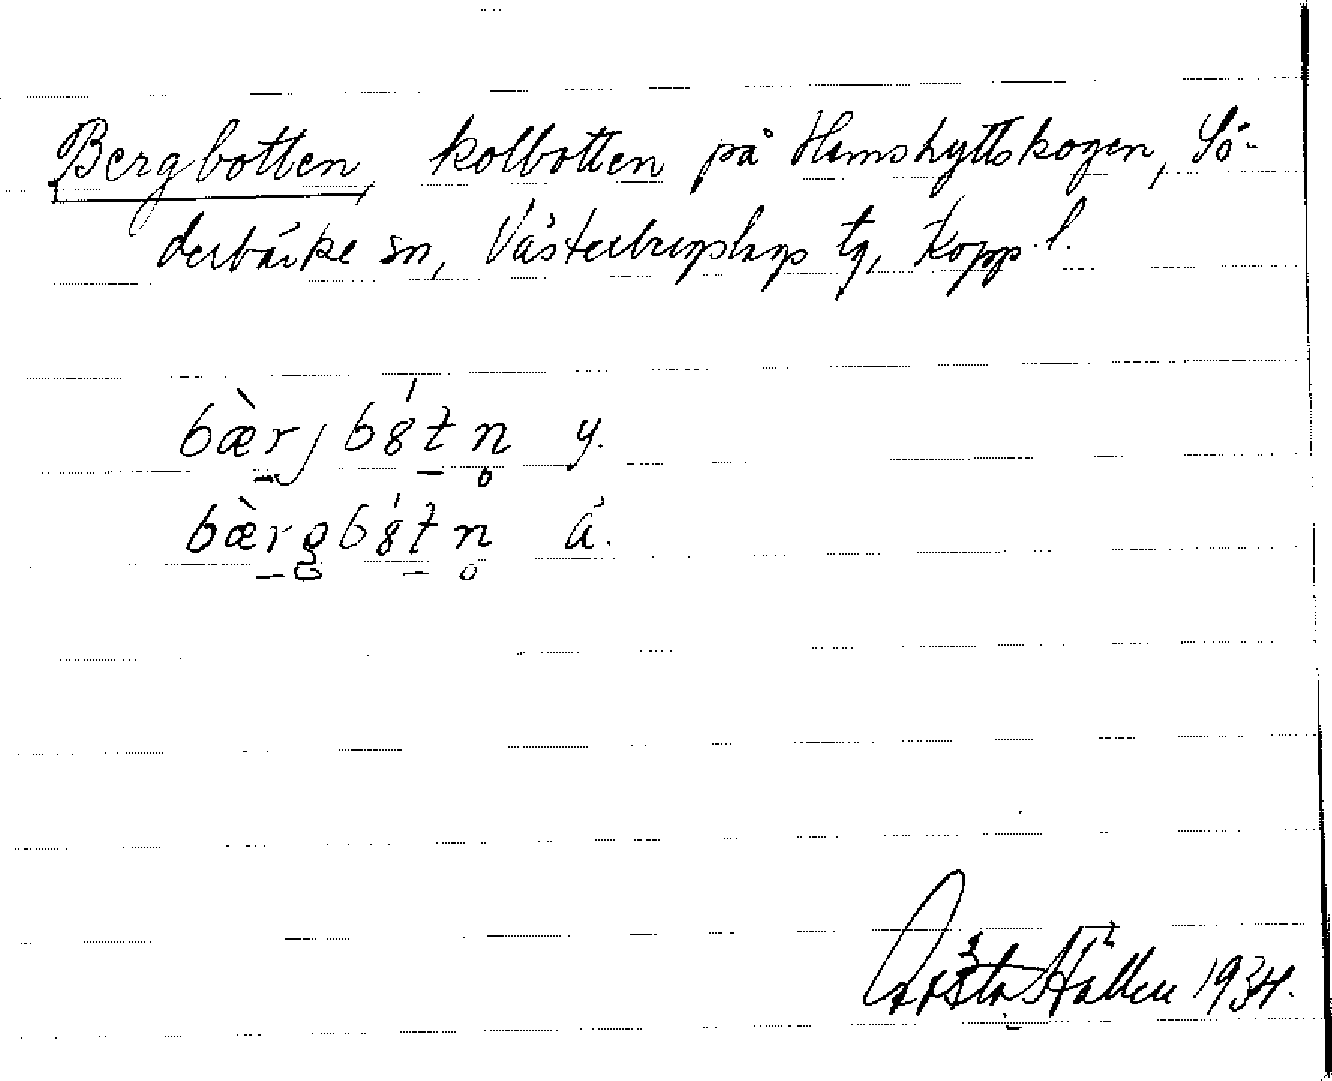 Bergbotten, kolbotten på Hemshyttskogen, Sö-
derbärke sn, Västerbergslags tg, Kopp. l.
bæ̀rjb8́tn̥ y.
bæ̀rgb8́tn̥ ä.
Gösta Hållen 1934.